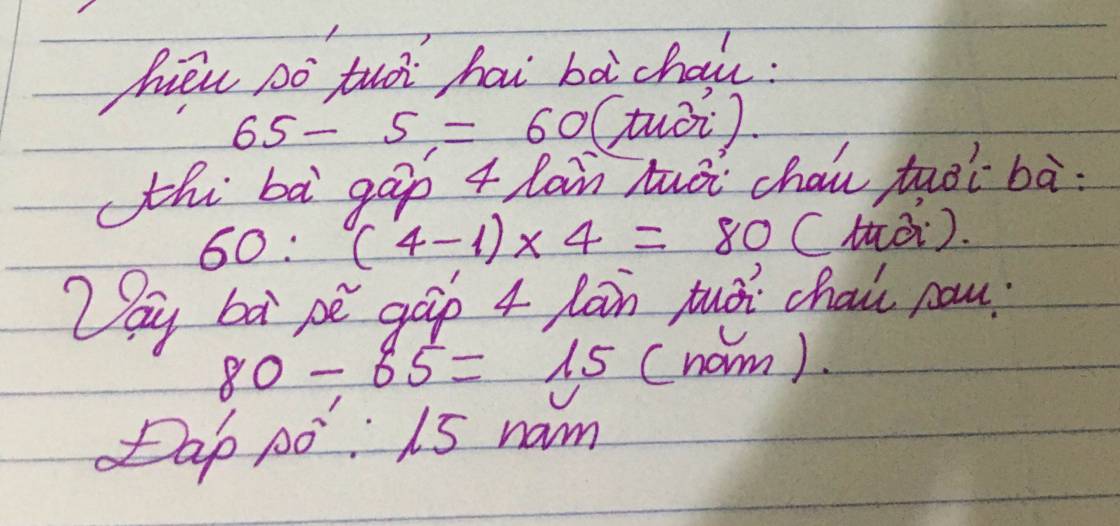 hiệu số tuổi hai bà cháu:
65 - 5 = 60 (tuổi).
thi bà gấp 4 lần tuổi cháu tuổi bà:
60: (4-1) x 4 = 80 (tuổi).
Vậy bà sẽ gấp 4 lần tuổi cháu sau:
80 - 65 = 15 (năm).
Đáp số: 15 năm